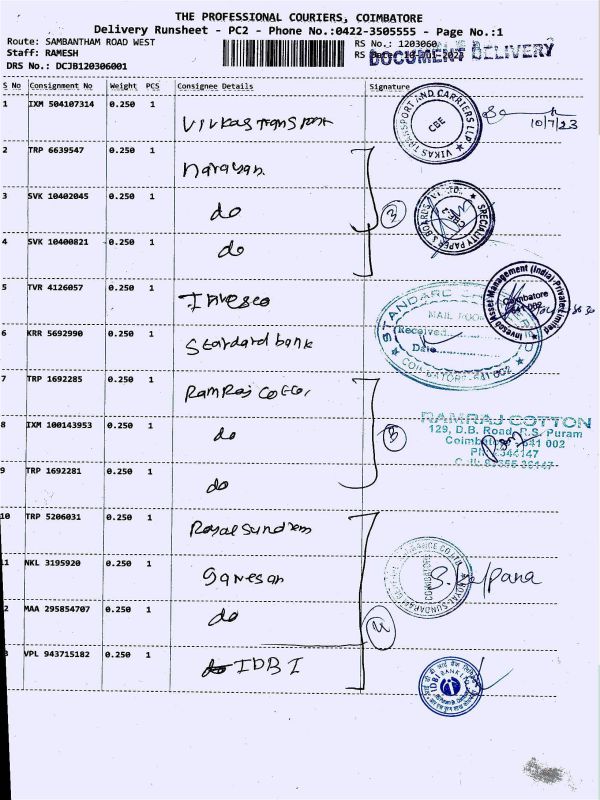 THE PROFESSIONAL COURIERS, COIMBATORE
Delivery Runsheet - PC2 - Phone No.:0422-3505555 - Page No.:1
Route: SAMBANTHAM ROAD WEST RS No.: 1203060
Staff: RAMESH RS DOCUMENT DELIVERY
DRS No.: DCJB120306001
S No Consignment No Weight PCS Consignee Details Signature
1 IXM 504107314 0.250 1 Vivkas Transport VIKAS TRANSPORT AND CARRIERS LLP CBE 10/7/23
2 TRP 6639547 0.250 1 Narayan
3 SVK 10402045 0.250 1 do 3 SPECIALITY PAPER & BOARDS
4 SVK 10400821 0.250 1 do
5 TVR 4126057 0.250 1 Invesco Invesco Asset Management (India) Private Limited Coimbatore 641 002
6 KRR 5692990 0.250 1 Standard bank STANDARD MAIL ROOM Received Date COIMBATORE-641 002
7 TRP 1692285 0.250 1 RamRaj Cotton
8 IXM 100143953 0.250 1 do 3 RAMRAJ COTTON
129, D.B. Road, R.S. Puram
Coimbatore - 641 002
9 TRP 1692281 0.250 1 do
10 TRP 5206031 0.250 1 Royal Sundram
11 NKL 3195920 0.250 1 Ganesan ROYAL SUNDARAM COIMBATORE S. Kalpana
2 MAA 295854707 0.250 1 do 4
3 VPL 943715182 0.250 1 IDBI IDBI BANK LTD